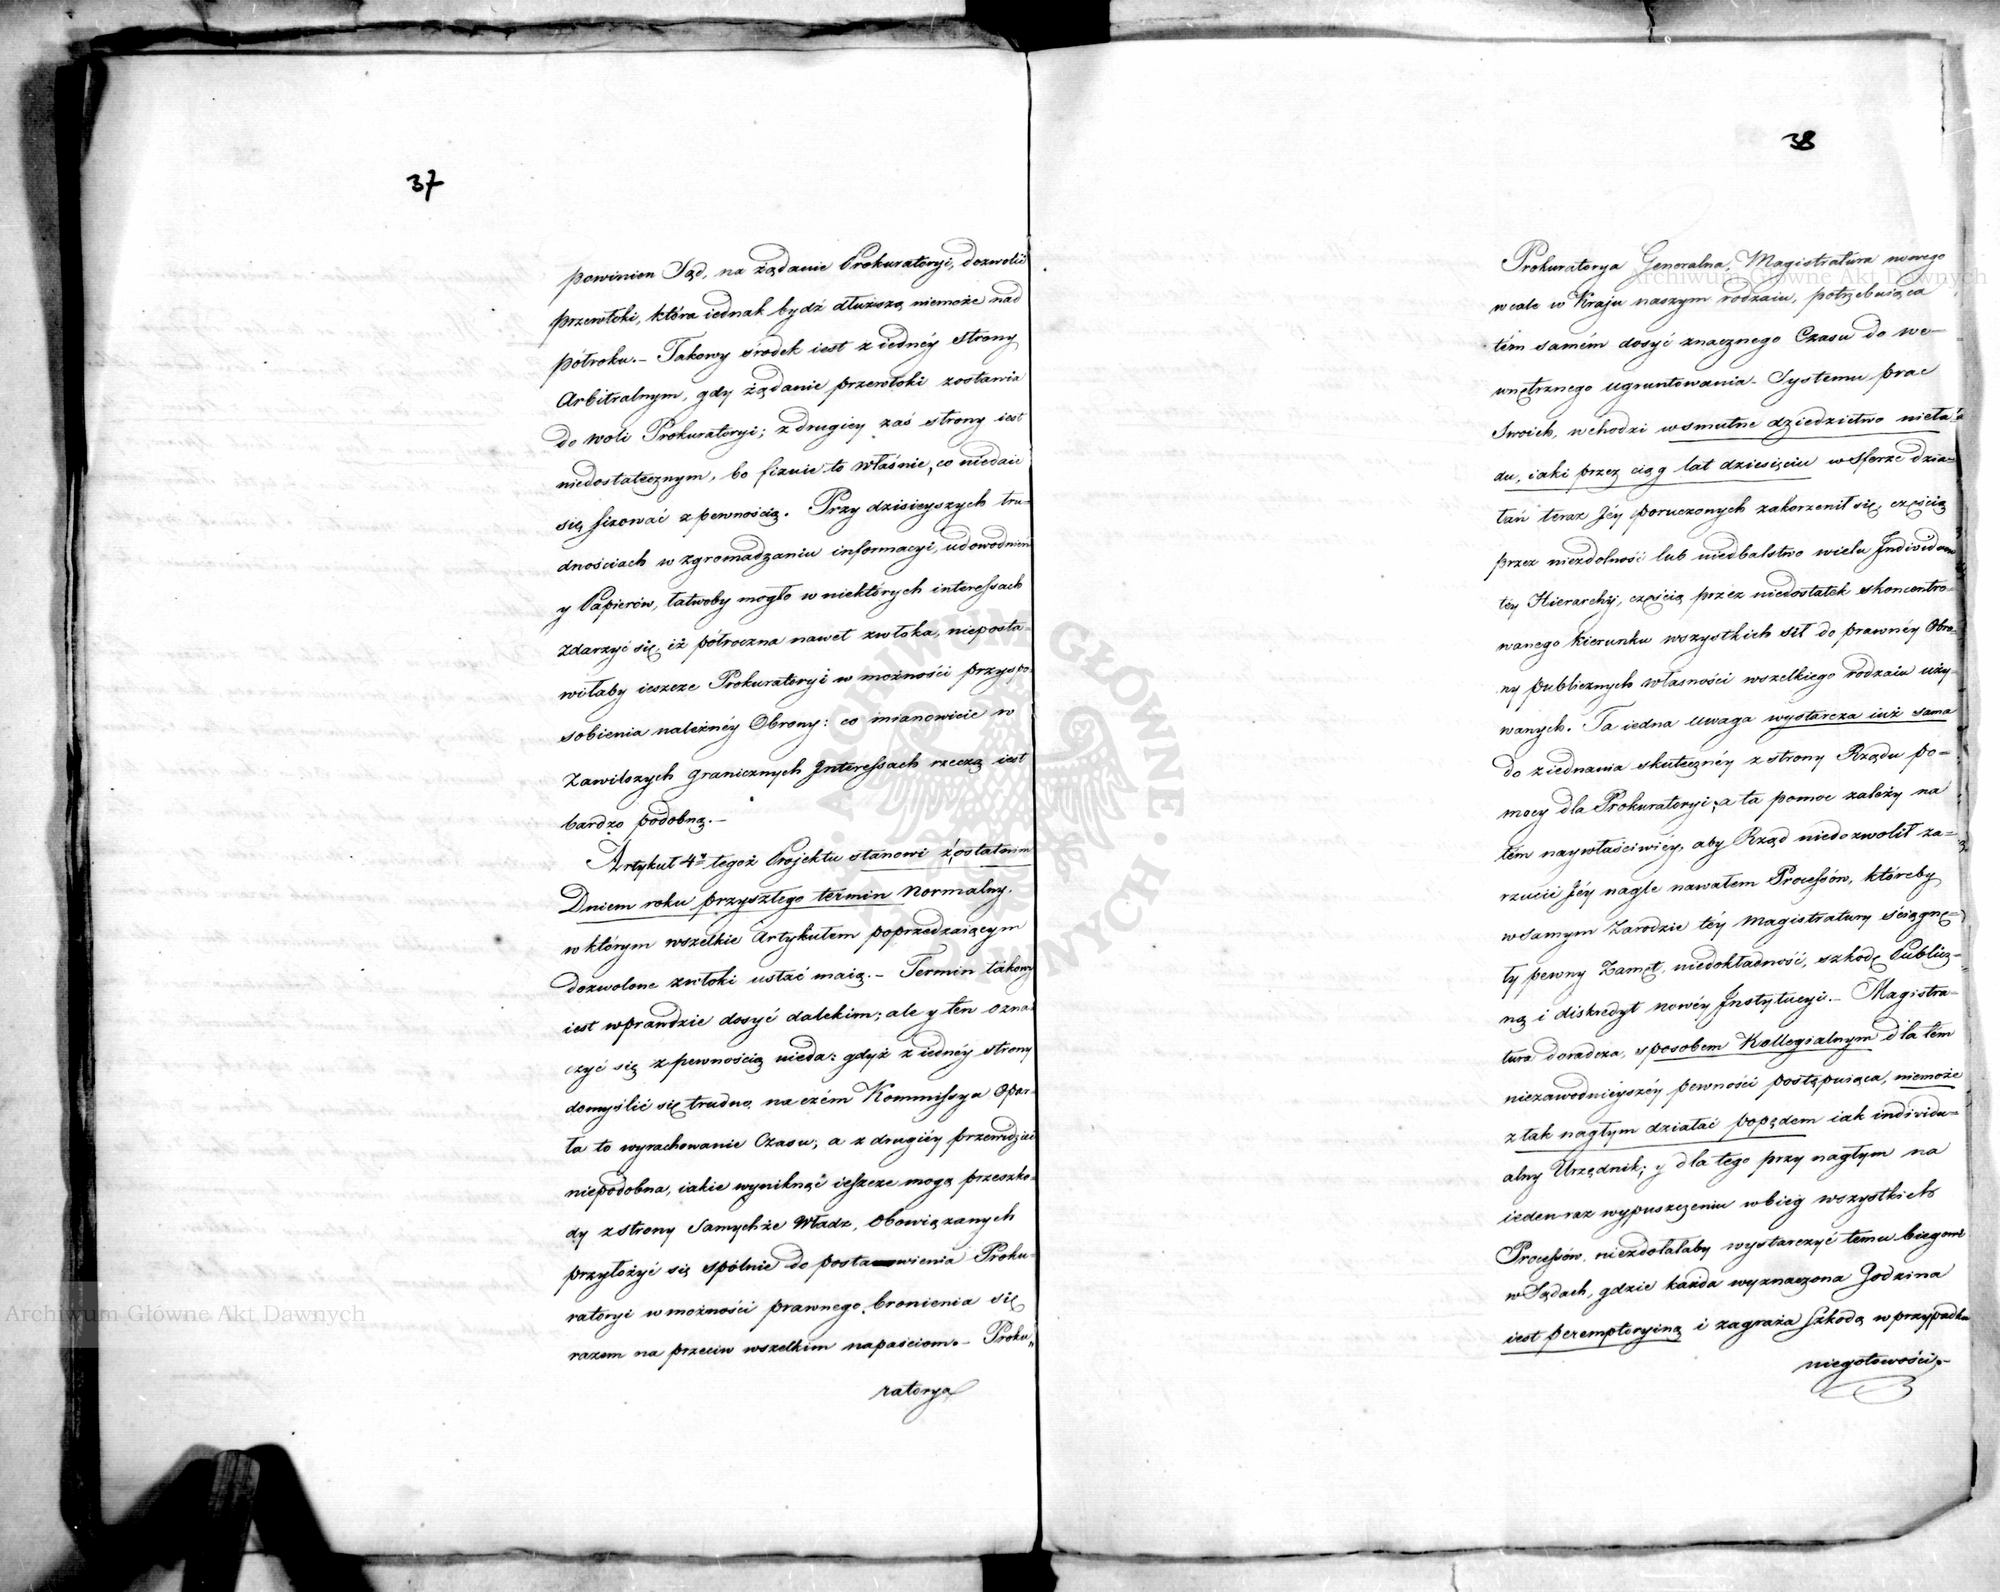 37
powinien Sąd, na żądanie Prokuratoryi, dozwolić
przewłoki, która iednak bydź dłuższą niemoże nad
półroku.– Takowy środek iest z iednéy strony
Arbitralnym, gdy żądanie przewłoki zostawia
do woli Prokuratoryi; z drugiey zaś strony iest
niedostatecznym, bo fixuie to właśnie, co niedaie
się fixować z pewnością. Przy dzisieyszych tru-
dnościach w zgromadzaniu informacyi, udowodnień
y Papierów, łatwoby mogło w niektórych interessach
zdarzyć się, iż półroczna nawet zwłoka, nieposta-
wiłaby ieszcze Prokuratoryi w możności przyspo-
sobienia należnéy Obrony: co mianowicie w
Zawilszych granicznych Interessach rzeczą iest
bardzo podobną.–
Artykuł 4ty tegoż Projektu stanowi z ostatnim
Dniem roku przyszłego termin Normalny,
w którym wszelkie Artykułem poprzedzaiącym
dozwolone zwłoki ustać maią.– Termin takowy
iest wprawdzie dosyć dalekim; ale y ten ozna-
czyć się z pewnością nieda: gdyż z iednéy strony
domyślić się trudno, na czém Kommissya Opar-
ła to wyrachowanie Czasu; a z drugiéy przewidzieć
niepodobna, iakie wyniknąć ieszcze mogą przeszko-
dy z strony Samychże Władz, Obowiązanych
przyłożyć się spólnie do postawienia Proku-
ratoryi w możności prawnego bronienia się
razem na przeciw wszelkim napaściom.– Proku-
ratorya
38
Prokuratorya Generalna, Magistratura nowego
wcale w Kraju naszym rodzaiu, potrzebuiąca
tém samém dosyć znacznego Czasu do we-
wnętrznego ugruntowania Systemu prac
Swoich, wchodzi w smutne dziedzictwo nieła-
du, iaki przez ciąg lat dziesięciu w Sferze dzia-
łań teraz Jéy poruczonych zakorzenił się, częścią
przez niezdolność lub niedbalstwo wielu Individuów
téy Hierarchÿi, częścią przez niedostatek skoncentro-
wanego kierunku wszystkich sił do prawnéy Obro-
ny publicznych własności wszelkiego rodzaiu uży-
wanych. Ta iedna uwaga wystarcza iuż sama
do ziednania skutecznéy z strony Rządu po-
mocy dla Prokuratoryi; a ta pomoc zależy na
tém naywłaściwiéy, aby Rząd niedozwolił za-
rzucić Jéy nagle nawałem Processów, któreby
w samym Zarodzie téy Magistratury ściągnę-
ły pewny Zamęt, niedokładność, szkodę Publicz-
ną i diskredyt nowéy Instytucyi.– Magistra-
tura doradcza, sposobem Kollegialnym dla tem
niezawodnieyszéy pewności postępuiąca, niemoże
z tak nagłym działać popędem iak individu-
alny Urzędnik; y dla tego przy nagłym na
ieden raz wypuszczeniu w bieg wszystkich
Processów, niezdołałaby wystarczyć temu biegowi
w Sądach, gdzie każda wyznaczona Godzina
iest peremptoryiną i zagraża Szkodą w przypadku
niegotowości.–
Archiwum Główne Akt Dawnych
Archiwum Główne Akt Dawnych
ARCHIWUM GŁÓWNE AKT DAWNYCH